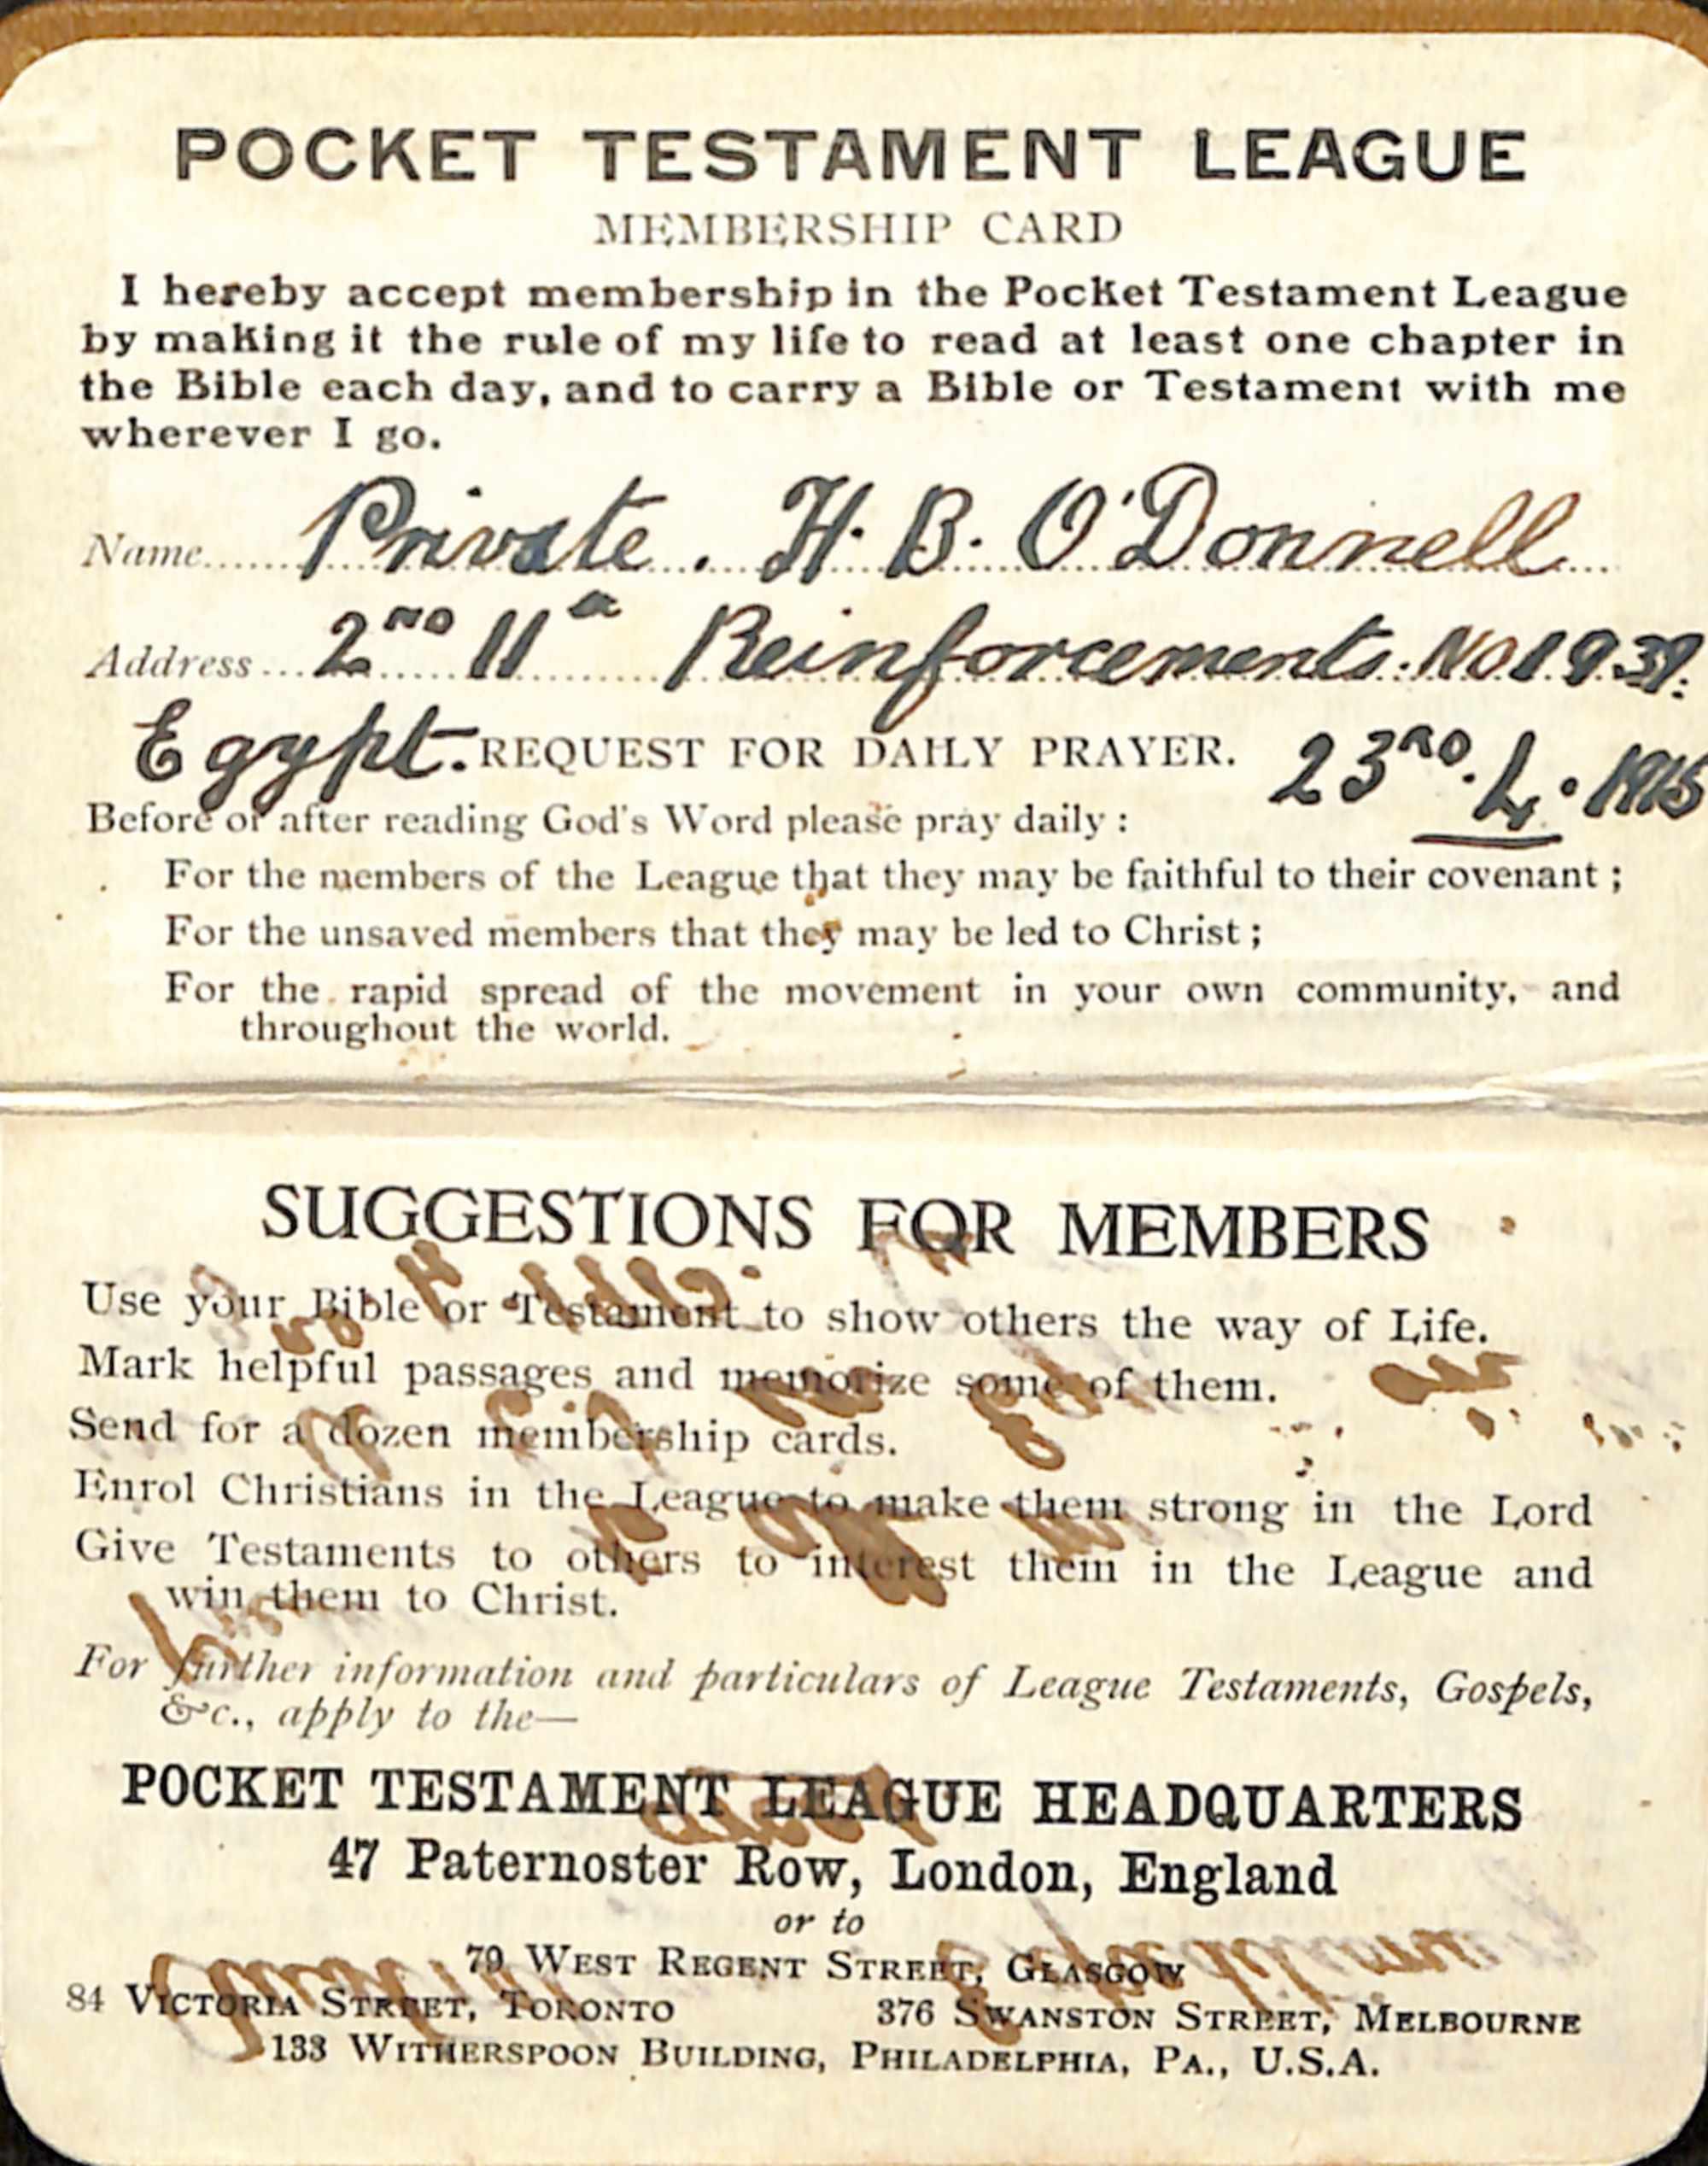 POCKET TESTAMENT LEAGUE
MEMBERSHIP CARD
I hereby accept membership in the Pocket Testament League
by making it the rule of my life to read at least one chapter in
the Bible each day, and to carry a Bible or Testament with me
wherever I go.
Name Private. H. B. O'Donnell
Address 2nd 11th Reinforcements. No 1939.
Egypt. REQUEST FOR DAILY PRAYER. 23rd. 4. 1915
Before or after reading God's Word please pray daily :
For the members of the League that they may be faithful to their covenant ;
For the unsaved members that they may be led to Christ ;
For the rapid spread of the movement in your own community, and
throughout the world.
SUGGESTIONS FOR MEMBERS
Use your Bible or Testament to show others the way of Life.
Mark helpful passages and memorize some of them.
Send for a dozen membership cards.
Enrol Christians in the League to make them strong in the Lord
Give Testaments to others to interest them in the League and
win them to Christ.
For further information and particulars of League Testaments, Gospels,
&c., apply to the—
POCKET TESTAMENT LEAGUE HEADQUARTERS
47 Paternoster Row, London, England
or to
79 WEST REGENT STREET, GLASGOW
84 VICTORIA STREET, TORONTO 376 SWANSTON STREET, MELBOURNE
133 WITHERSPOON BUILDING, PHILADELPHIA, PA., U.S.A.